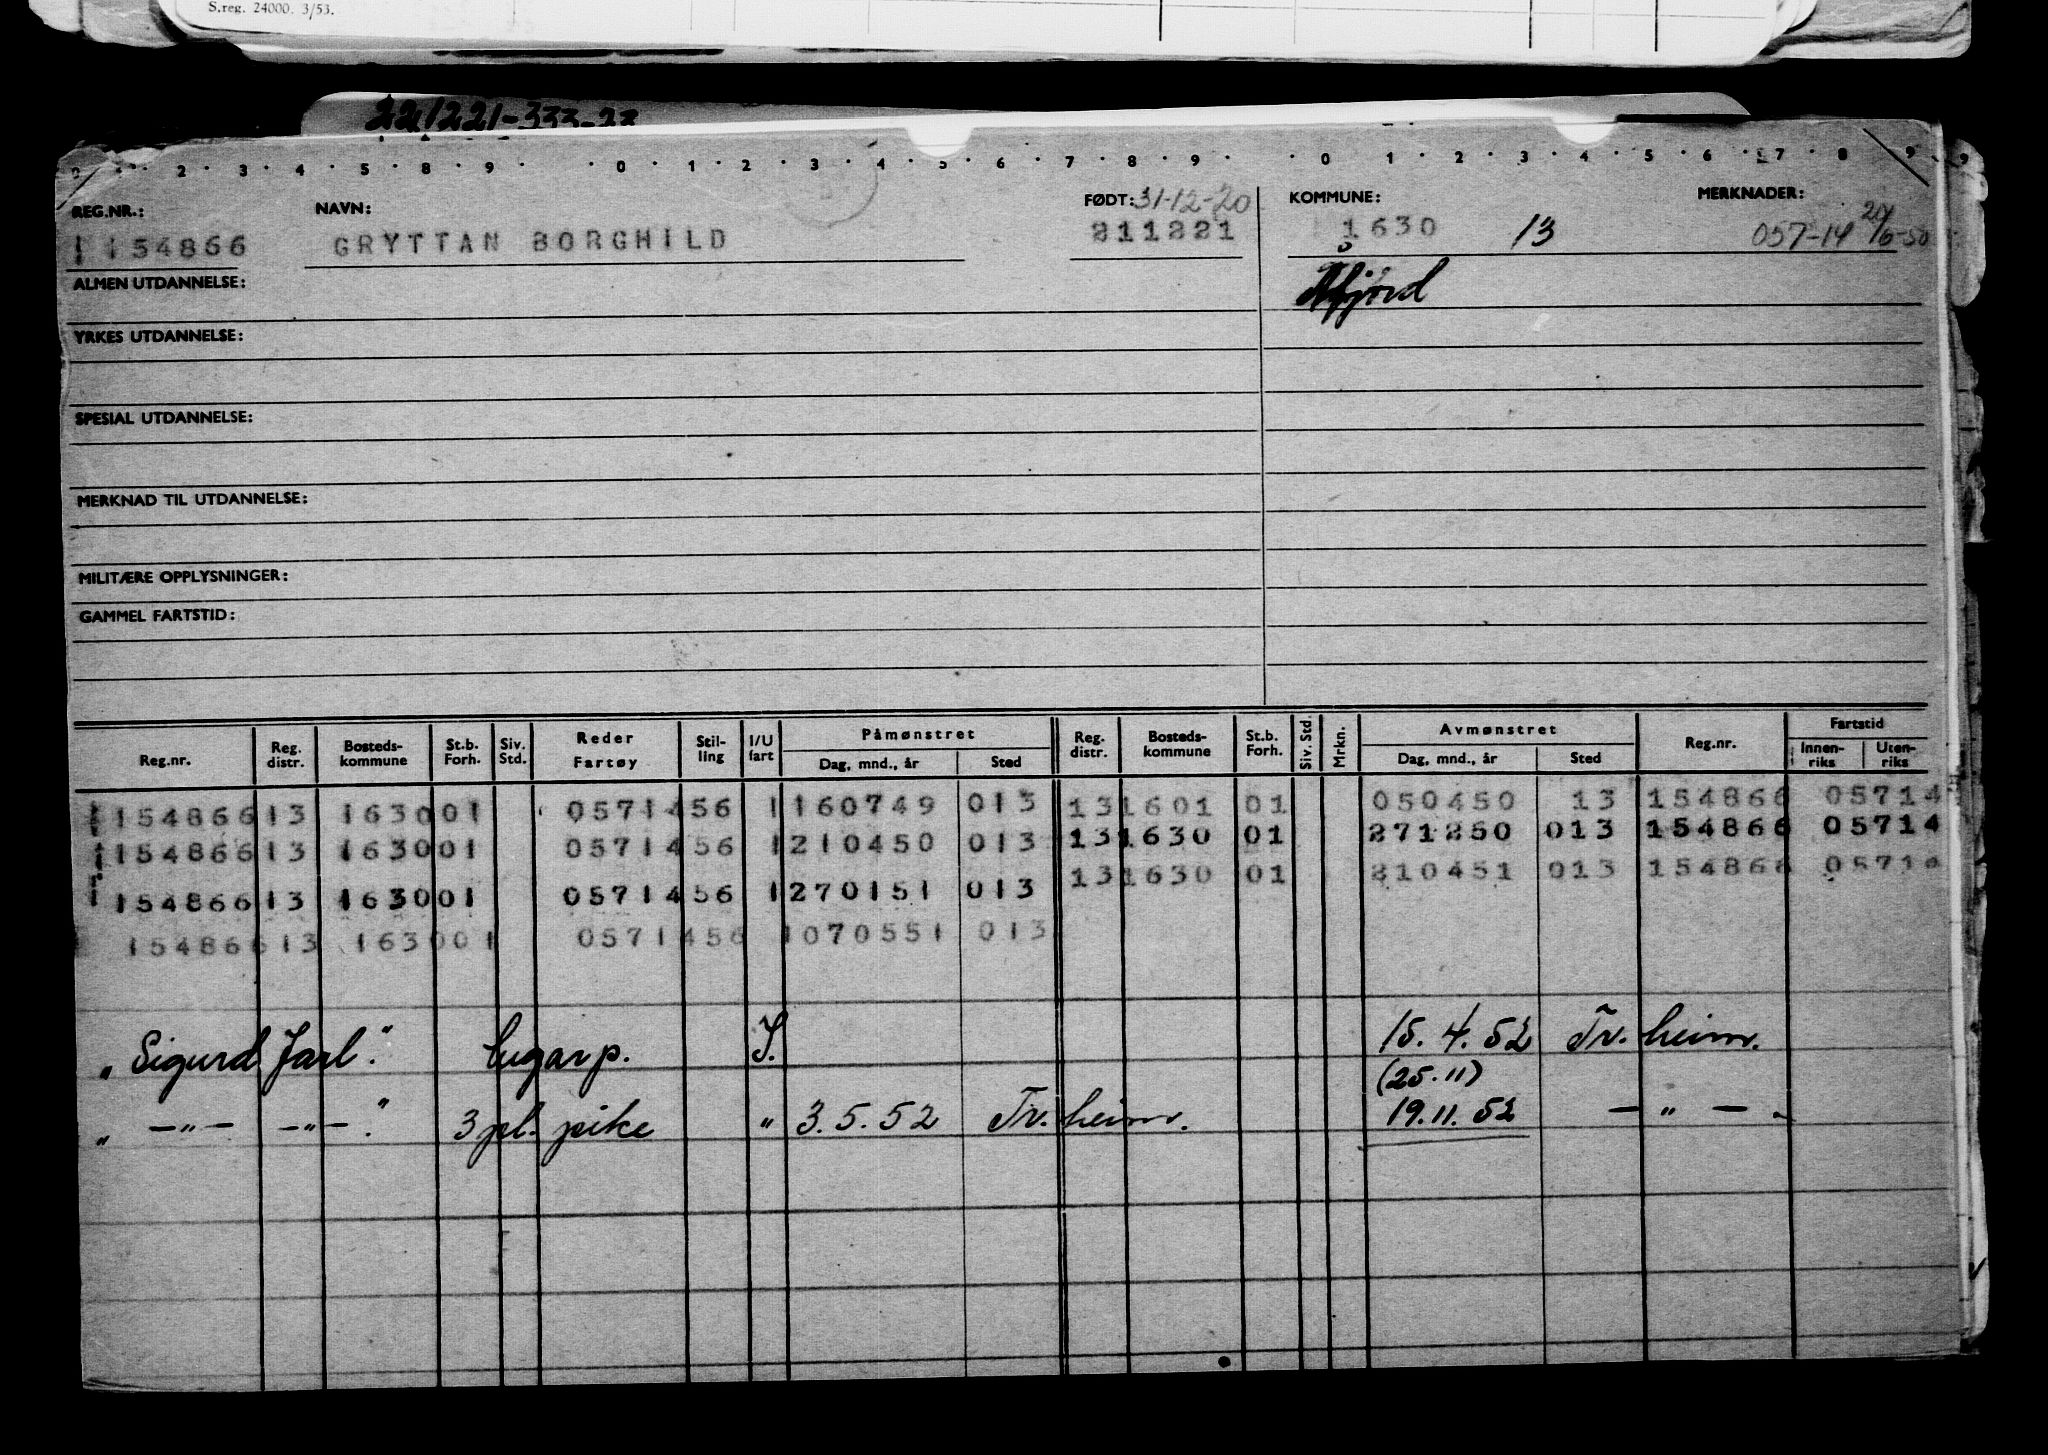 S.reg. 24000. 3/53.
221221-333-23
2 3 4 5 8 9 0 1 2 3 4 5 6 7 8 9 0 1 2 3 4 5 6 7 8 9
REG.NR.: NAVN: FØDT: 31-12-20 KOMMUNE: MERKNADER:
154866 GRYTTAN BORGHILD 211221 1630 13 057-14 20/6-50
ALMEN UTDANNELSE: Åfjord
YRKES UTDANNELSE:
SPESIAL UTDANNELSE:
MERKNAD TIL UTDANNELSE:
MILITÆRE OPPLYSNINGER:
GAMMEL FARTSTID:
Reg.nr. Reg. distr. Bosteds-kommune St.b. Forh. Siv. Std. Reder Fartøy Stil-ling I/U fart Påmønstret Dag, mnd., år Sted Reg. distr. Bosteds-kommune St.b. Forh. Siv. Std. Mrkn. Avmønstret Dag, mnd., år Sted Reg.nr. Fartstid Innen-riks Uten-riks
154866 13 1630 01 05714 56 1 160749 013 13 1601 01 050450 13 154866 05714
154866 13 1630 01 05714 56 1 210450 013 13 1630 01 271250 013 154866 05714
154866 13 1630 01 05714 56 1 270151 013 13 1630 01 210451 013 154866 05714
154866 13 1630 01 05714 56 1 070551 013
"Sigurd Jarl". Cugarp. I. 15.4.52 Tr.heim.
(25.11)
" —"— —"—". 3 pl. pike " 3.5.52 Tr.heim. 19.11.52 — " — .